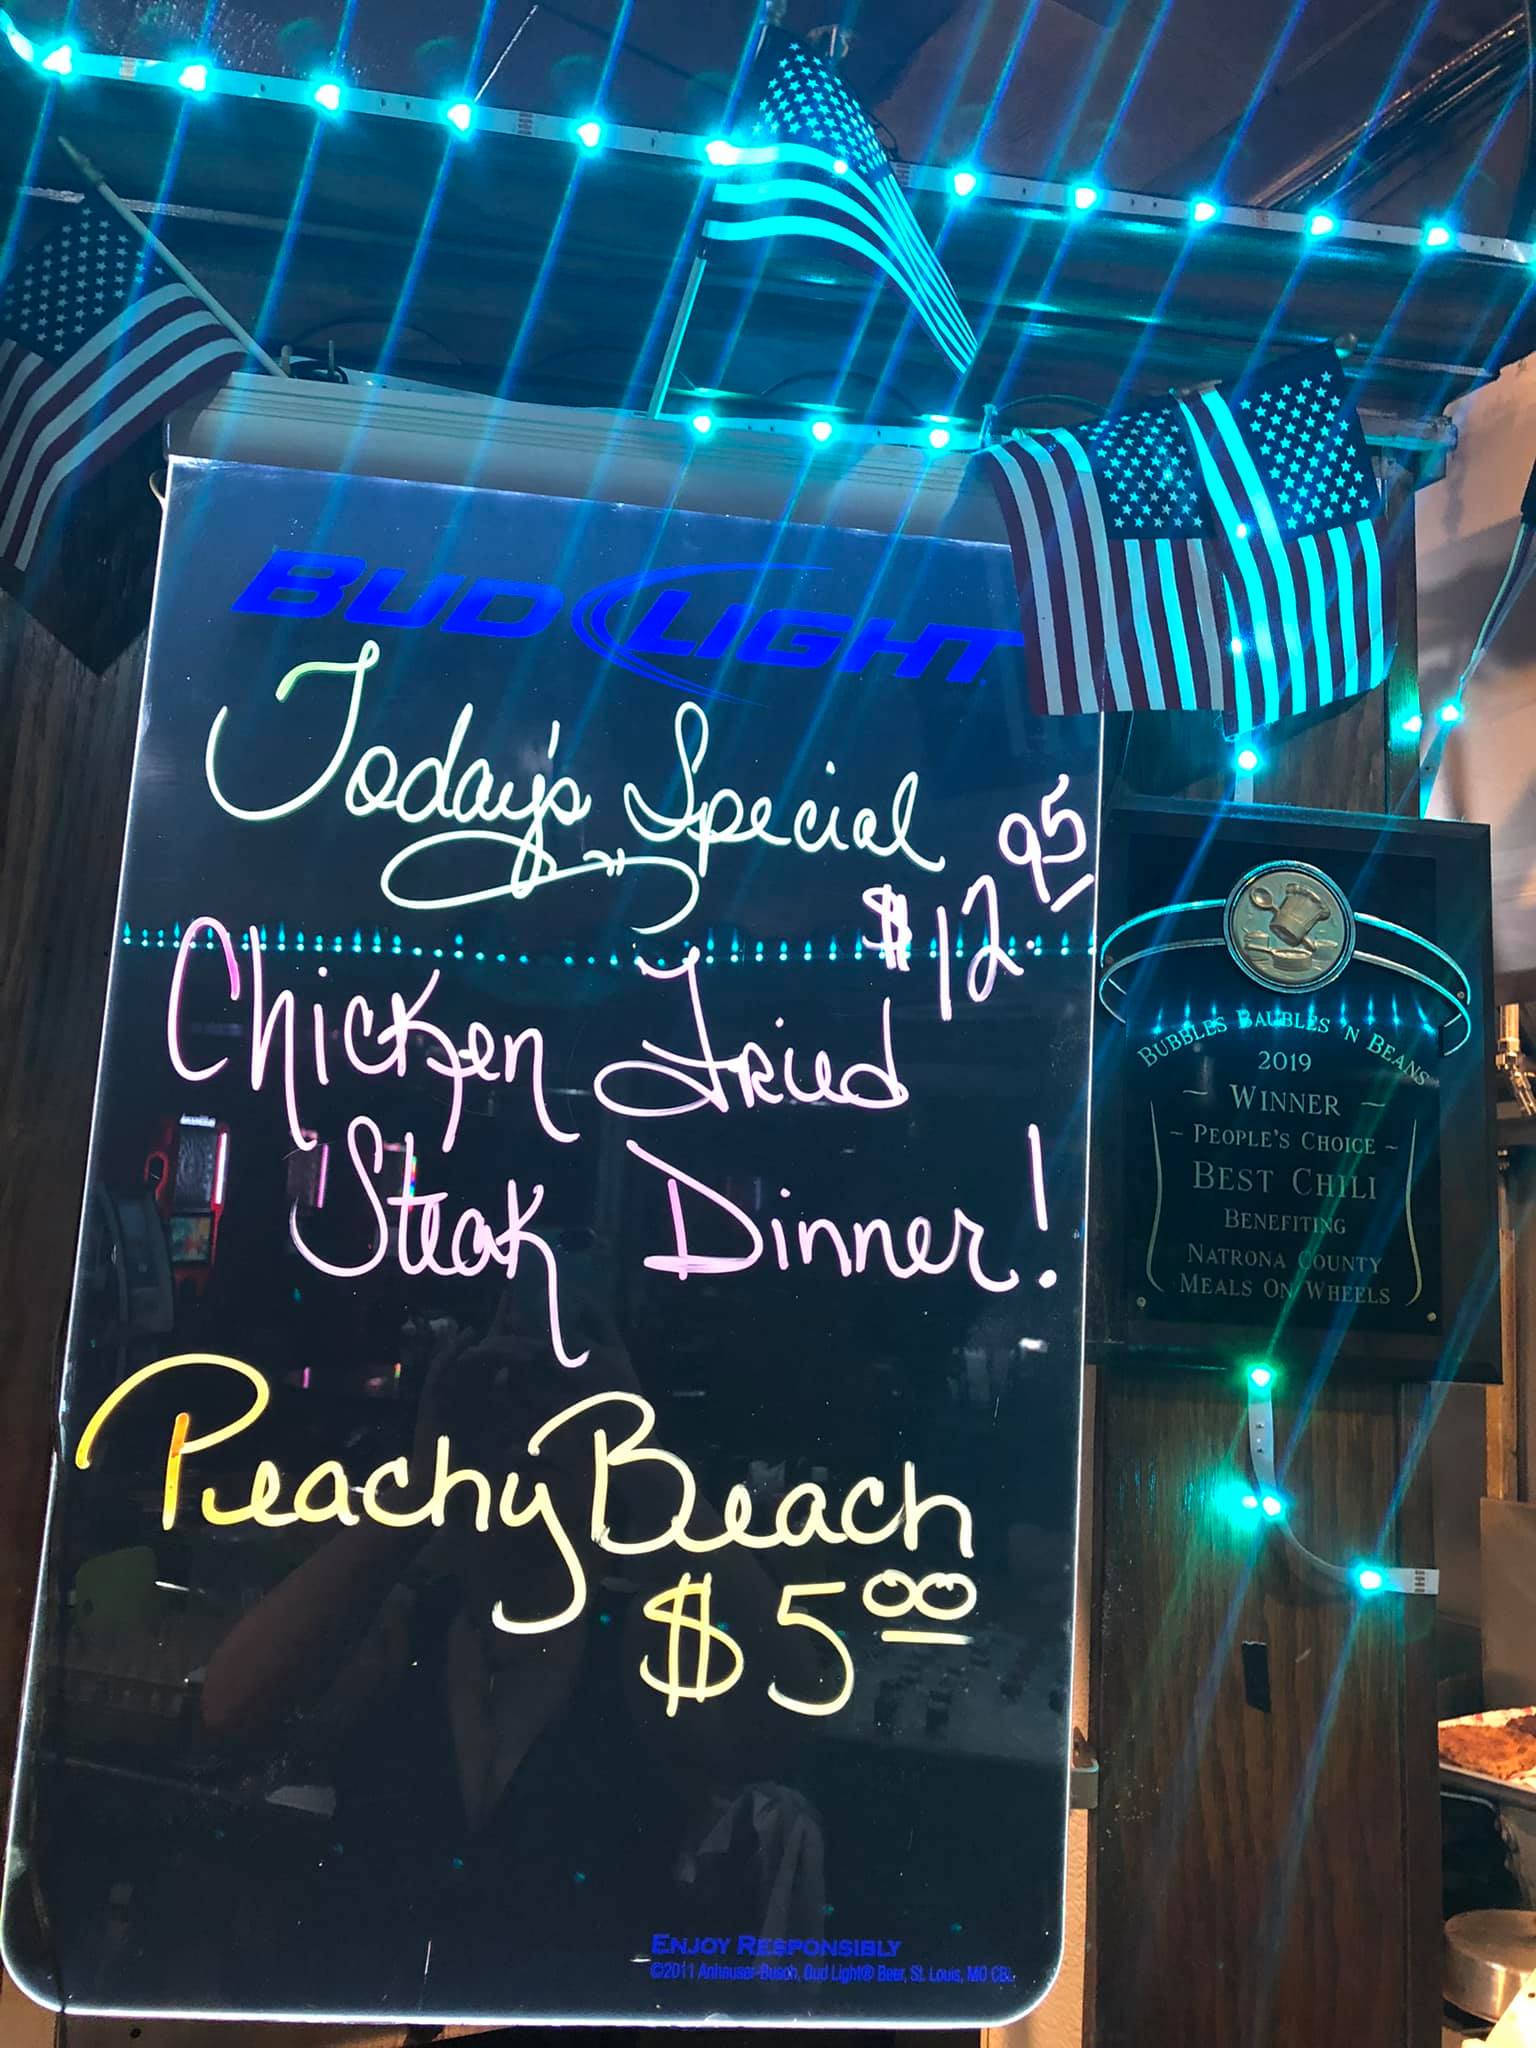 BUD LIGHT
Today's Special
$12.95
Chicken Fried
Steak Dinner!
Peachy Beach
$5.00
ENJOY RESPONSIBLY
©2011 Anheuser-Busch, Bud Light® Beer, St. Louis, MO
BUBBLES BAUBLES 'N BEANS
2019
~ WINNER ~
~ PEOPLE'S CHOICE ~
BEST CHILI
BENEFITING
NATRONA COUNTY
MEALS ON WHEELS